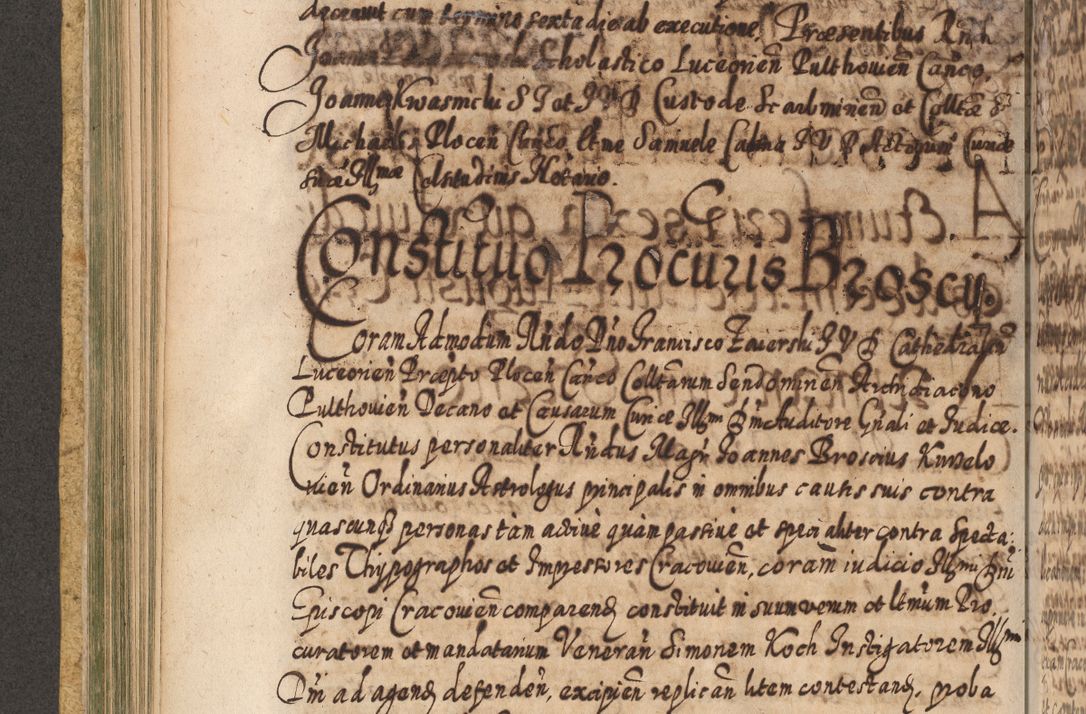 decernit cum termino sexta die ab executione. Præsentibus Rndi
Joanne Scholastico Luceorien̄ Pulthouien̄ Can̄co,
Joanne Kwasnicki S J et J V D Custode Scarbminen̄ et Colltæ S
Michaelis Plocen̄ Can̄co, et me Samuele J V D Actorum Curiæ
suæ Illmæ Celsitudinis Notario.
Constituo Procuris Broscy.
Coram Admodum Rn̄do Dn̄o Francisco Zaierski J V D Cathedralium
Luceorien̄ Præpto Plocen̄ Can̄co Colltarum Sendominen̄ Archidiacono
Pulthouien̄ Decano et Causarum Curiæ Illmi Dni Auditore Gn̄ali et Judice.
Constitutus personaliter Rn̄dus Magr̄ Joannes Broscius Kurzelo
uien̄ Ordinarius Astrologus principalis in omnibus causis suis contra
quascunq3 personas tam actiue quàm passiue et specialiter contra Specta:
biles Thypographos et Impressores Cracouien̄, coram iudicio Illmi Dni
Episcopi Cracouien̄ comparend constituit in suum verum et ltmum Pro
curatorem et mandatarium Veneran̄ Simonem Koch Instigatorem Illmi
Dn̄i ad agend defenden̄, excipien̄ replican̄ litem contestand, proba